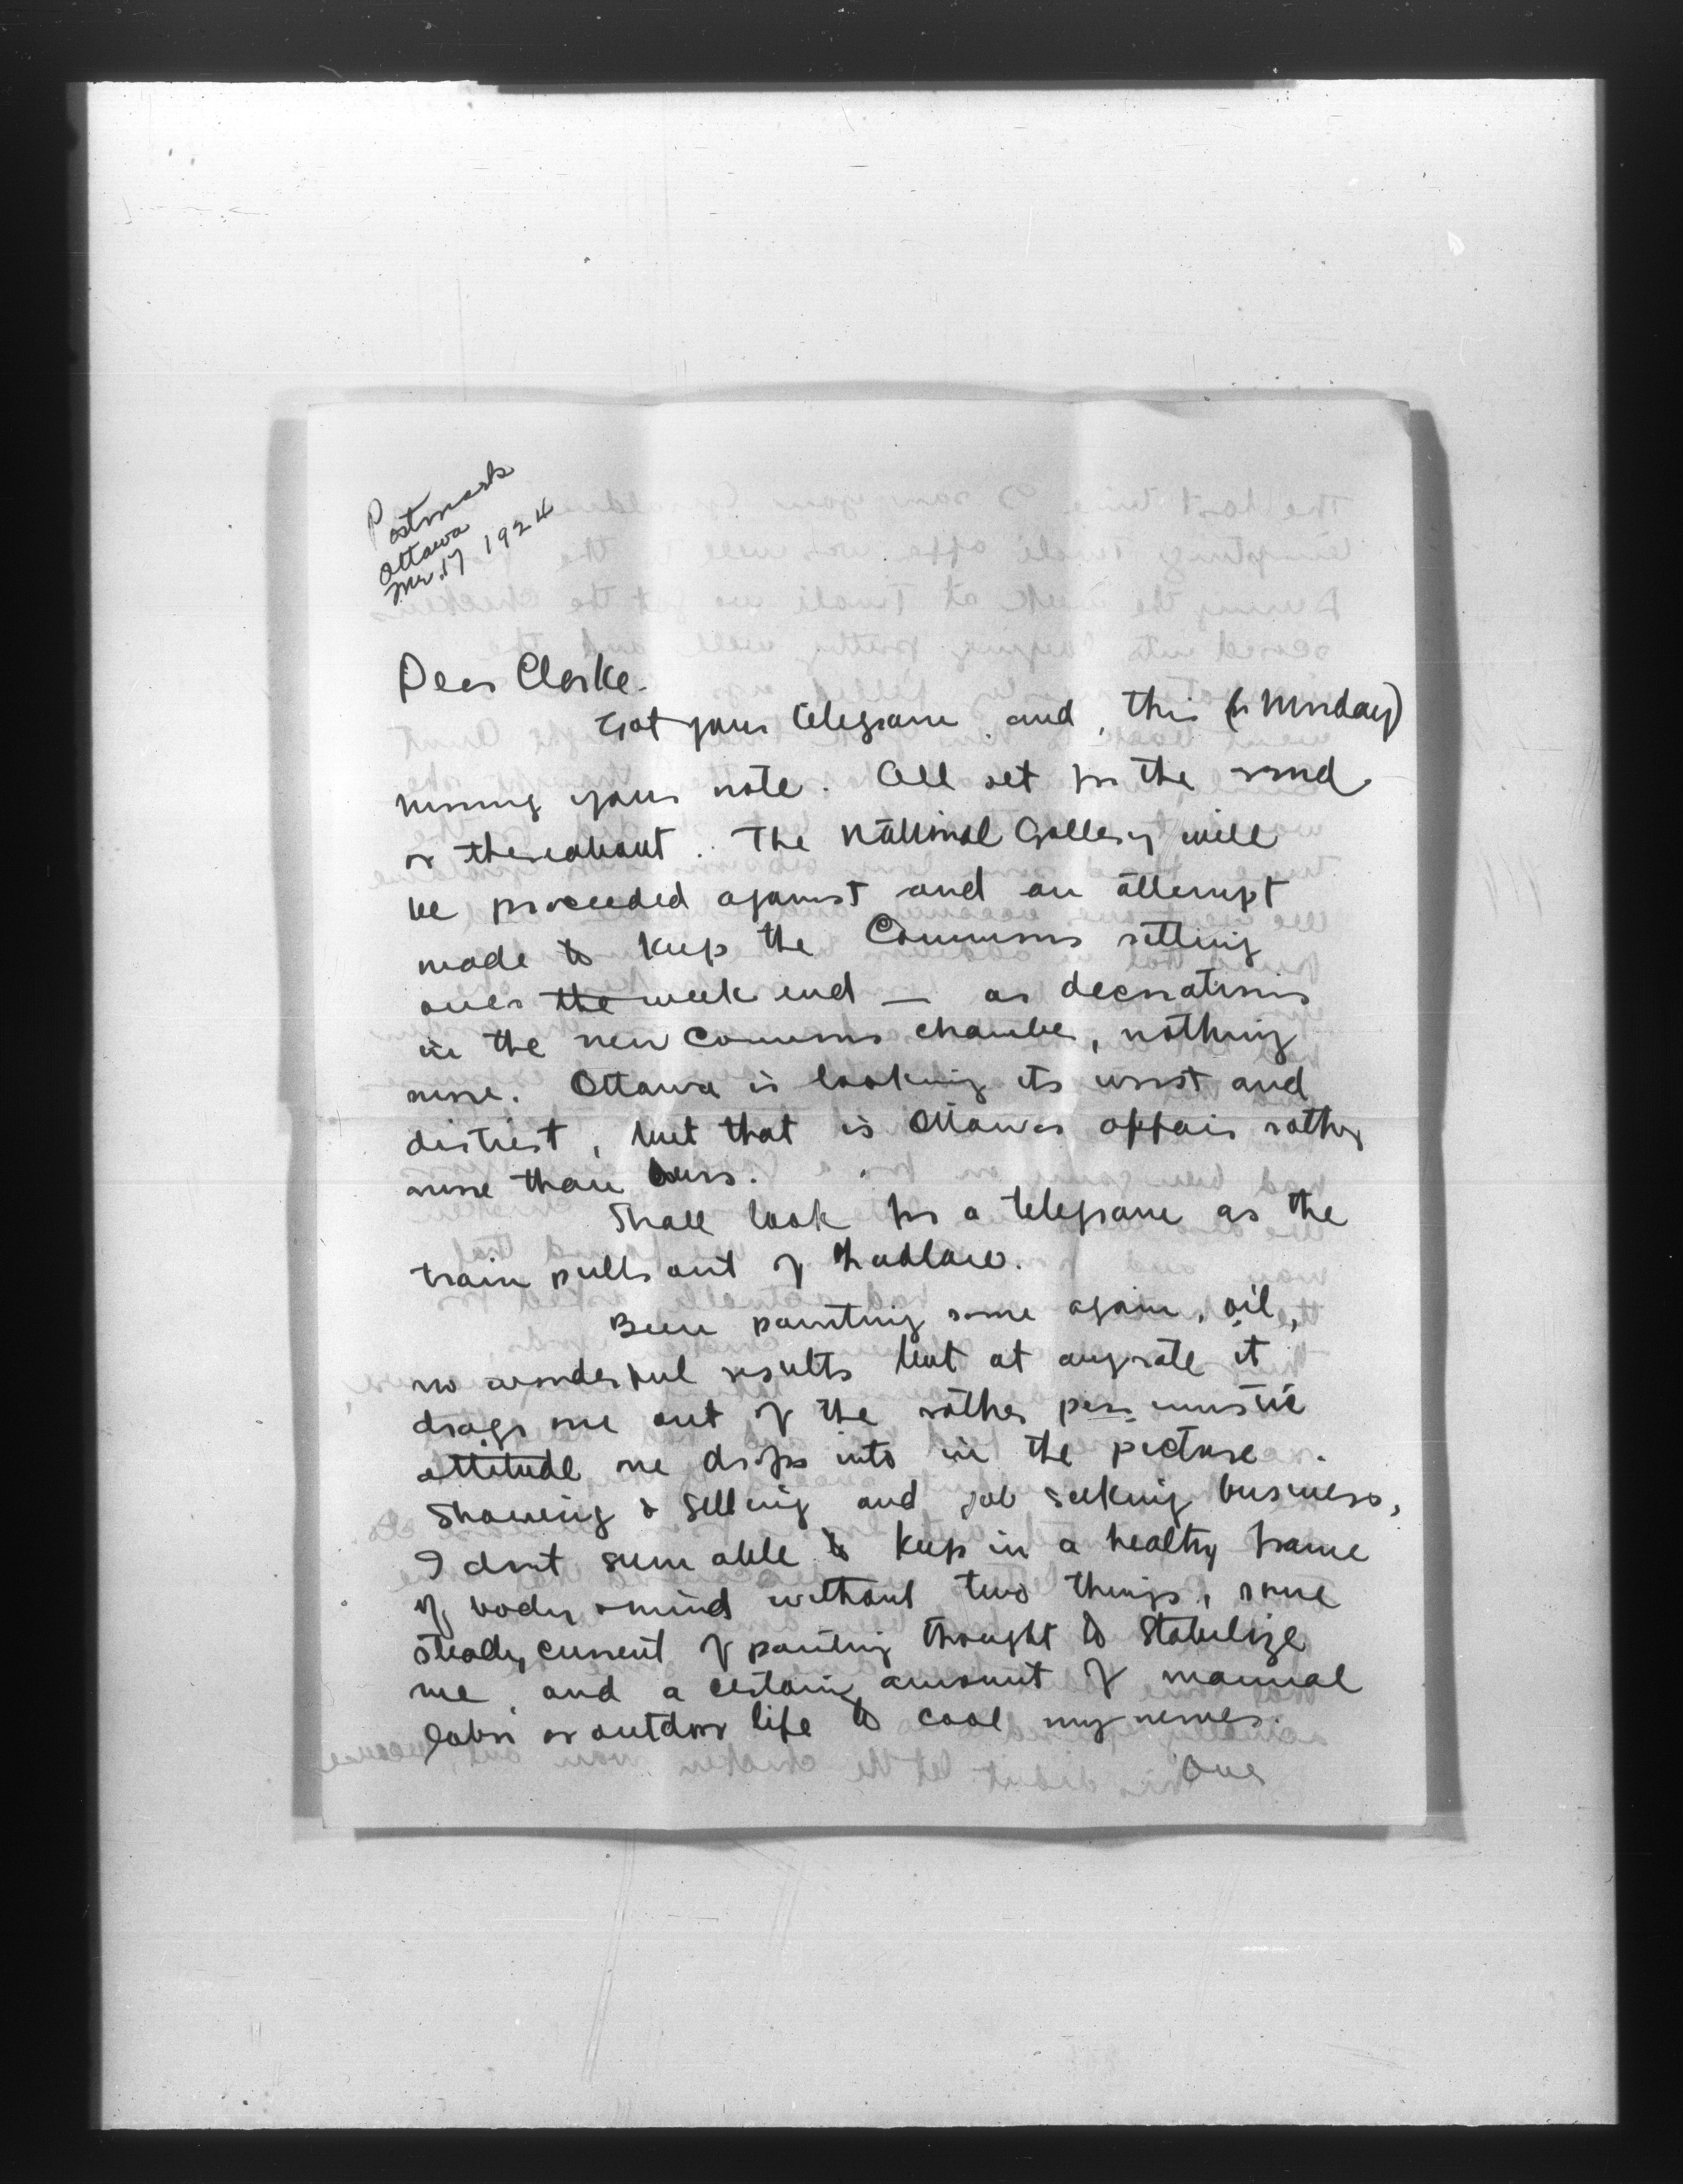 Postmark
Ottawa
Mr. 17 1924
Dear Clarke.
Got your telegram and, this (is Monday)
morning your note. All set for the
or thereabout. The National Gallery will
be proceeded against and an attempt
made to keep the Commons sitting
over the week end — as decorations
in the new Commons chamber, nothing
more. Ottawa is looking its worst and
dirtiest, but that is Ottawas affair rather
more than ours.
Shall look for a telegram as the
train pulls out of
Been painting some again, oil,
no wonderful results but at anyrate it
drags me out of the rather pessimistic
attitude one drops into in the picture
showing & selling and job seeking business,
I dont seem able to keep in a healthy frame
of body & mind without two things, some
steady current of painting thought to stabilize
me, and a certain amount of manual
labor or outdoor life to cool my nerves.
Our